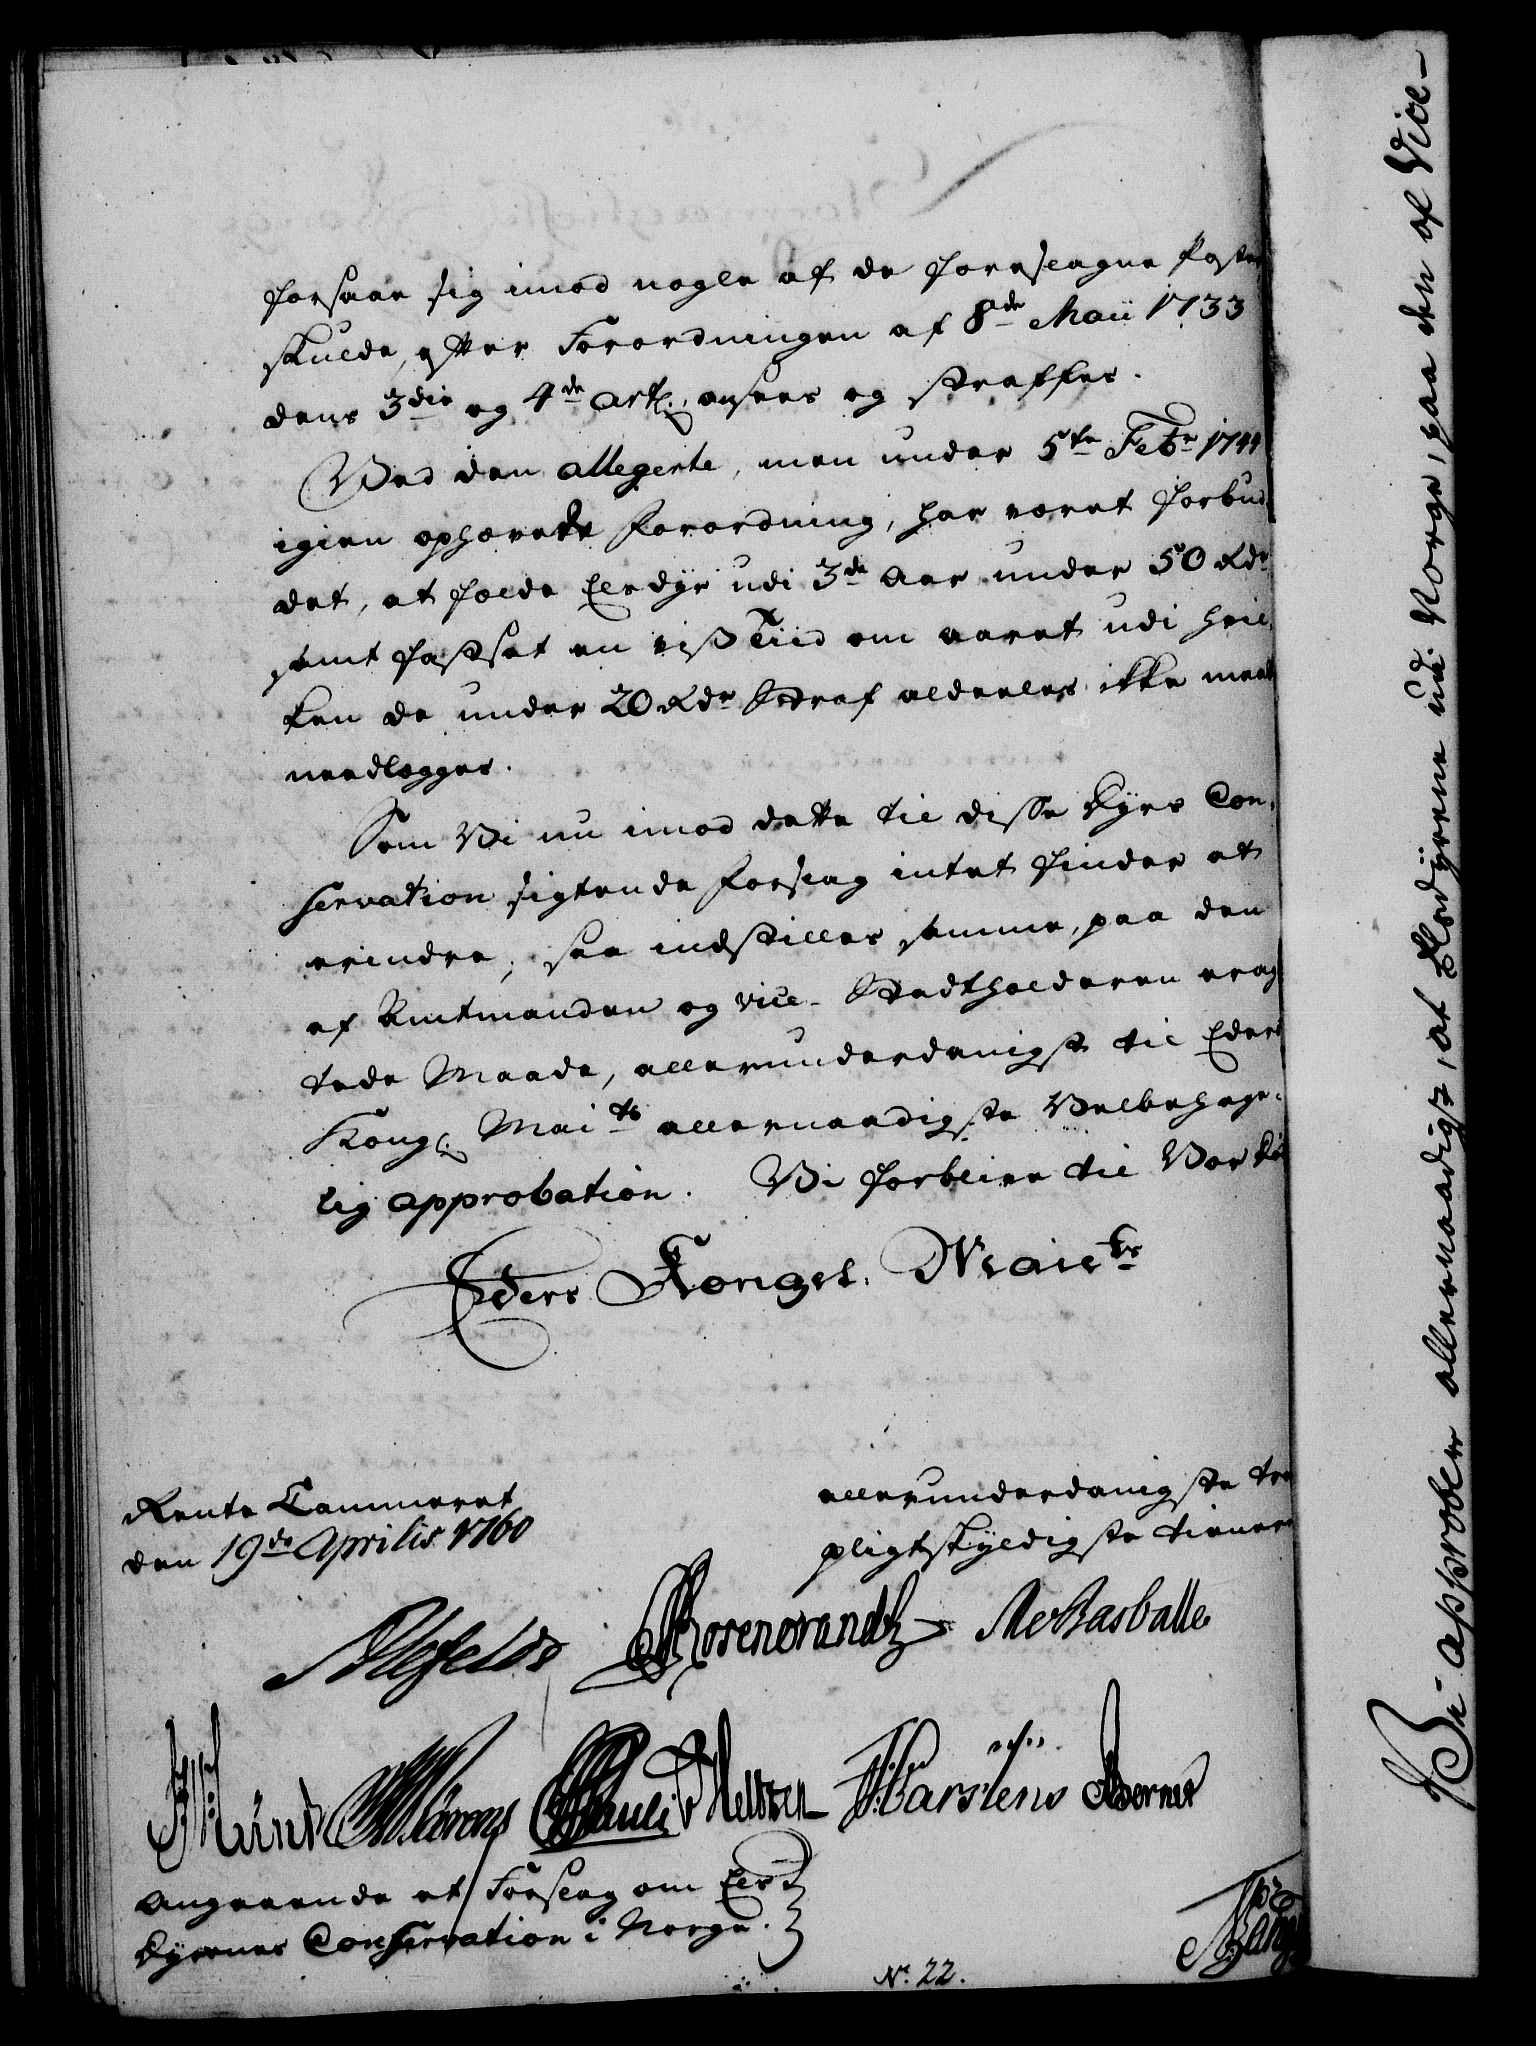 forsaae sig imod nogle af de foreslagne Poster
skulde, efter Forordningen af 8de Maii 1733
dens 3die og 4de Art. ansees og straffes.
Ved den allegerte, men under 5te Febr 1744
igien ophævede Forordning, har været forbud,
det, at fælde Elsdyr udi 3de Aar under 50 Rdr
samt fastsat en viss Tiid om aaret udi hvil,
ken de under 20 Rdr Straf aldeeles ikke maatte
needlegges.
Som Vi nu imod dette til disse Dyrs Con,
servation sigtende Forslag intet finder at
erindre, saa indstilles samme, paa den
af Amtmanden og Vice-Stadtholderen erag,
tede Maade, allerunderdanigst til Eders
Kongl. Maits allernaadigste Velbehage,
lig approbation. Vi forblive til Vor Død
Eders Kongel. Maiets
Rente Cammeret
den 19de Aprilis 1760
allerunderdanigste troe
pligtskyldigste tienere
Ahlefeldt Rosencrantz
Holtzen Carstens
Angaaende et Forslag om Els
Dyrenes Conservation i Norge.
No. 22.
Vi approbere allernaadigst, at Elsdyrene udi Norge, paa den af Vice-